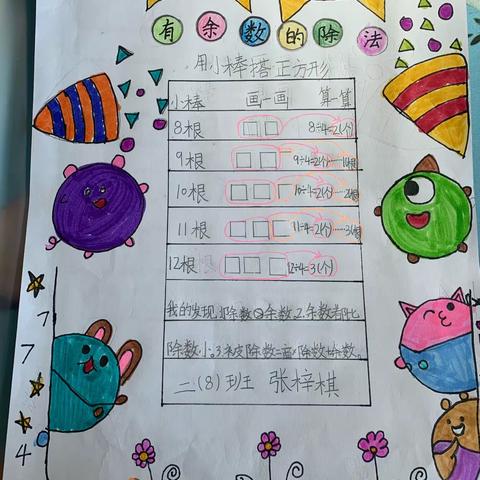 有余数的除法
用小棒搭正方形
小棒 画一画 算一算
8根 8÷4=2(个)
9根 9÷4=2(个)……1(根)
10根 10÷4=2(个)……2(根)
11根 11÷4=2(个)……3(根)
12根 12÷4=3(个)
我的发现:1.除数 余数2.余数都比
除数小。3.被除数=商×除数+余数。
二(8)班 张梓棋
7
7
4